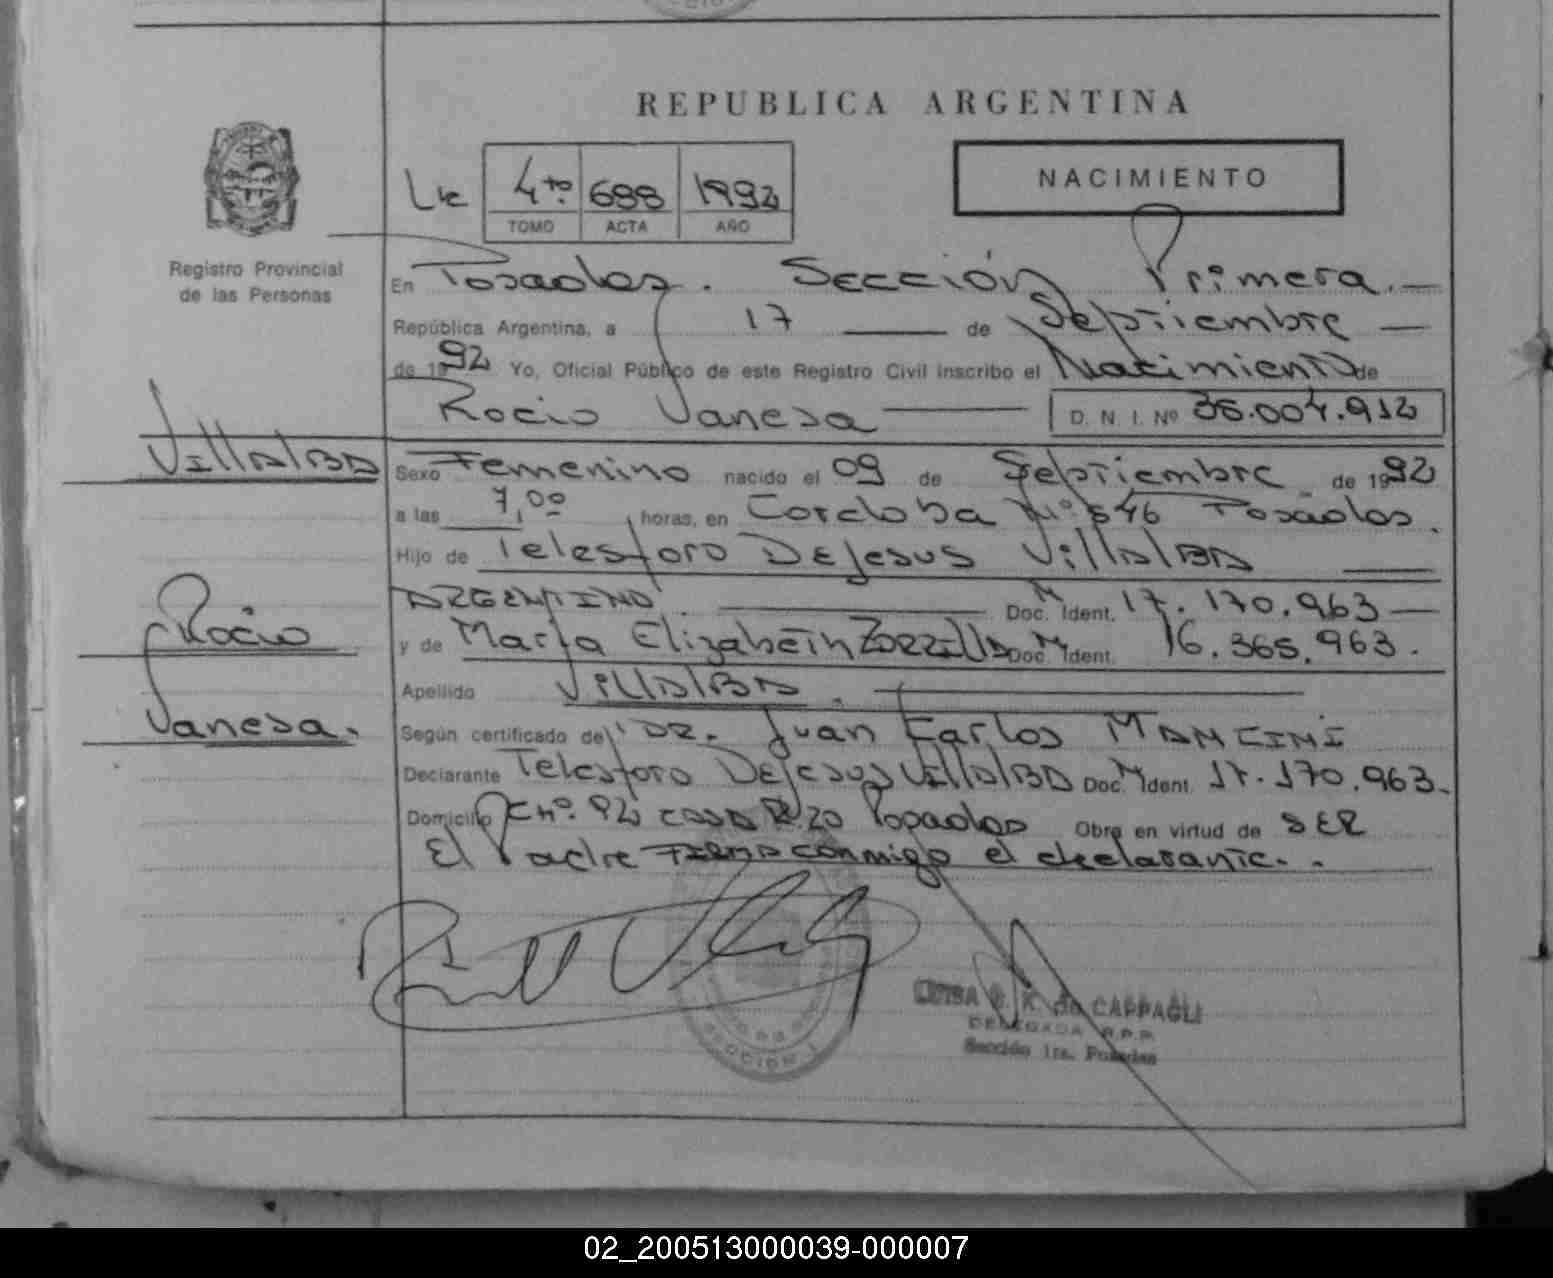 REPUBLICA ARGENTINA
NACIMIENTO
4to. 688 1992
TOMO ACTA AÑO
Registro Provincial
de las Personas
En Posadas. Sección Primera.—
República Argentina, a 17 — de Septiembre —
de 1992 Yo, Oficial Público de este Registro Civil inscribo el Nacimiento de
Rocio Vanesa — D. N. I. Nº 36.004.912
Villalba
Sexo Femenino nacido el 09 de Septiembre de 1992
a las 7,00 horas, en Cordoba Nº 846 Posadas.
Hijo de Telesforo DeJesus Villalba —
Argentino. — Doc. M Ident. 17.170.963 —
Rocio
y de Maria Elizabeth Zorrilla Doc. M Ident. 16.365.963.
Apellido Villalba. —
Vanesa.
Según certificado del DR. Juan Carlos Mancini
Declarante Telesforo DeJesus Villalba Doc. M Ident. 17.170.963.
Domicilio Chº. 92 casa 20 Posadas Obra en virtud de SER
El Padre Firma conmigo el declarante..
DE CAPPAGLI
DELEGADA R.P.P.
Sección 1ra. Posadas
SECCION 1
02_200513000039-000007